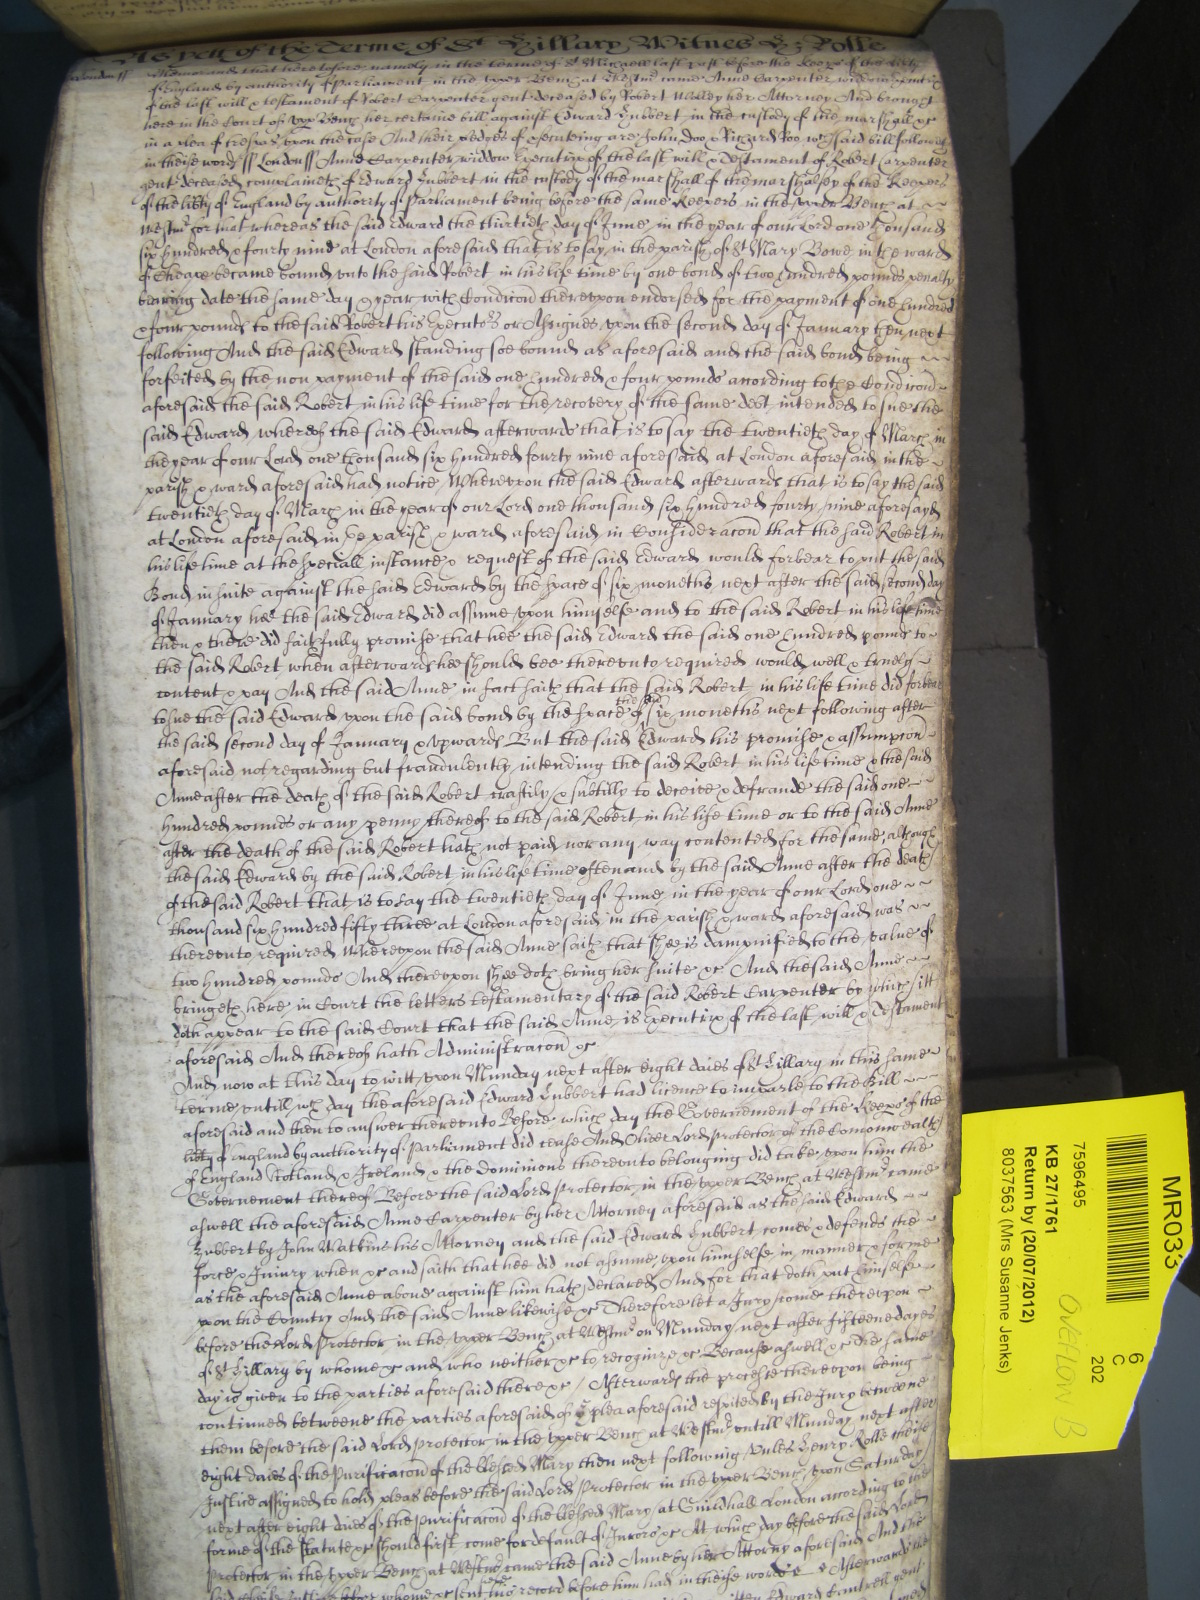 As yett of the Terme of St Hillary Witnes H: Rolle
London ss Memorand that heretofore namely in the terme of St Michaell last past before the Keepers of the libty
of England by authority of Parliament in the upper Bench at Westmr came Anne Carpenter widdow Executrix
of the last will & testament of Robert Carpenter gent deceased by Robert Molley her Attorney And brought
here in the Court of upp Bench her certaine bill against Edward Hubbert in the custody of the marshall &c
in a plea of trespas upon the case And their pledges of prosecuting are John Doo & Richard Roo wch said bill followes
in theise words ss London ss Anne Carpenter widdow Executrix of the last will & Testament of Robert Carpenter
gent deceased complaineth of Edward Hubbert in the custody of the marshall of the marshalsey of the Keepers
of the libty of England by authority of Parliament being before the same Keepers in the upper Bench at
Westmr for that whereas the said Edward the thirtieth day of June in the year of our Lord one thousand
six hundred & fourty nine at London aforesaid that is to say in the parish of St Mary Bowe in the ward
of Cheape became bound unto the said Robert in his life time by one bond of two hundred pounds penalty
bearing date the same day & year with Condicon thereupon endorsed for the payment of one hundred
& four pounds to the said Robert his Executors or Assignes upon the second day of January then next
following And the said Edward standing soe bound as aforesaid and the said bond being
forfeited by the non payment of the said one hundred & four pounds according to the Condicon
aforesaid the said Robert in his life time for the recovery of the same debt intended to sue the
said Edward whereof the said Edward afterwards that is to say the twentieth day of March in
the year of our Lord one thousand six hundred fourty nine aforesaid at London aforesaid in the
parish & ward aforesaid had notice Whereupon the said Edward afterwards that is to say the said
twentieth day of March in the year of our Lord one thousand six hundred fourty nine aforesayd
at London aforesaid in ye parish & ward aforesaid in Consideracon that the said Robert in
his life time at the speciall instance & request of the said Edward would forbear to put the said
Bond in suite against the said Edward by the space of six moneths next after the said second day
of January hee the said Edward did assume upon himselfe and to the said Robert in his life time
then & there did faithfully promise that hee the said Edward the said one hundred pounds to
the said Robert when afterwards hee should bee thereunto required would well & truely
content & pay And the said Anne in fact saith that the said Robert in his life time did forbear
to sue the said Edward upon the said bond by the space of the sd six moneths next following after
the said second day of January & upwards But the said Edward his promise & assumpcon
aforesaid not regarding but fraudulently intending the said Robert in his life time & the said
Anne after the death of the said Robert craftily & subtilly to deceive & defraude the said one
hundred pounds or any penny thereof to the said Robert in his life time or to the said Anne
after the death of the said Robert hath not paid nor any way contented for the same although
the said Edward by the said Robert in his life time often and by the said Anne after the death
of the said Robert that is to say the twentieth day of June in the year of our Lord one
thousand six hundred fifty three at London aforesaid in the parish & ward aforesaid was
thereunto required Whereupon the said Anne saith that shee is dampnified to the value of
two hundred pounds And thereupon shee doth bring her suite &c And the said Anne
bringeth here in Court the letters testamentary of the said Robert Carpenter by which itt
doth appear to the said Court that the said Anne is executrix of the last will & Testament
aforesaid And thereof hath Administracon &c
And now at this day to witt upon Munday next after eight daies of St Hillary in this same
terme untill wch day the aforesaid Edward Hubbert had licence to imparle to the Bill
aforesaid and then to answer thereunto Before which day the Governement of the Keeps of the
libty of England by authority of Parliament did cease And Oliver Lord Protector of the Comonwealth
of England Scotland & Ireland & the dominions thereunto belonging did take upon him the
Governement thereof Before the said Lord Protector in the upper Bench at Westmr came
aswell the aforesaid Anne Carpenter by her Attorney aforesaid as the said Edward
Hubbert by John Watkins his Attorney and the said Edward Hubbert comes & defends the
force & Injury when &c and saith that hee did not assume upon himselfe in manner & forme
as the aforesaid Anne above against him hath declared And for that doth put himselfe
upon the Country And the said Anne likewise &c Therefore let a Jury come thereupon
before the Lord Protector in the upper Bench at Westmr on Munday next after fifteene dayes
of St Hillary by whome &c and who neither &c to recognize &c Because aswell &c The same
day is given to the parties aforesaid there &c Afterwards the processe thereupon being
continued betweene the parties aforesaid of ye plea aforesaid respited by the Jury betweene
them before the said Lord Protector in the upper Bench at Westmr untill Munday next after
eight daies of the Purificacon of the blessed Mary then next following unles Henry Rolle cheife
Justice assigned to hold pleas before the said Lord Protector in the upper Bench upon Saturday
next after eight daies of the Purificacon of the blessed Mary at Guildhall London according to the
forme of the statute &c should first come for default of Jurors &c At which day before the said Lord
Protector in the upper Bench at Westmr came the said Anne by her Attorny aforesaid And the
said cheife Justice before whome &c sent here his record before him had in theise words Afterwards the
MR033
6
C
202
7596495
KB 27/1761
Return by (20/07/2012)
8037563 (Mrs Susanne Jenks)
OVERFLOW B